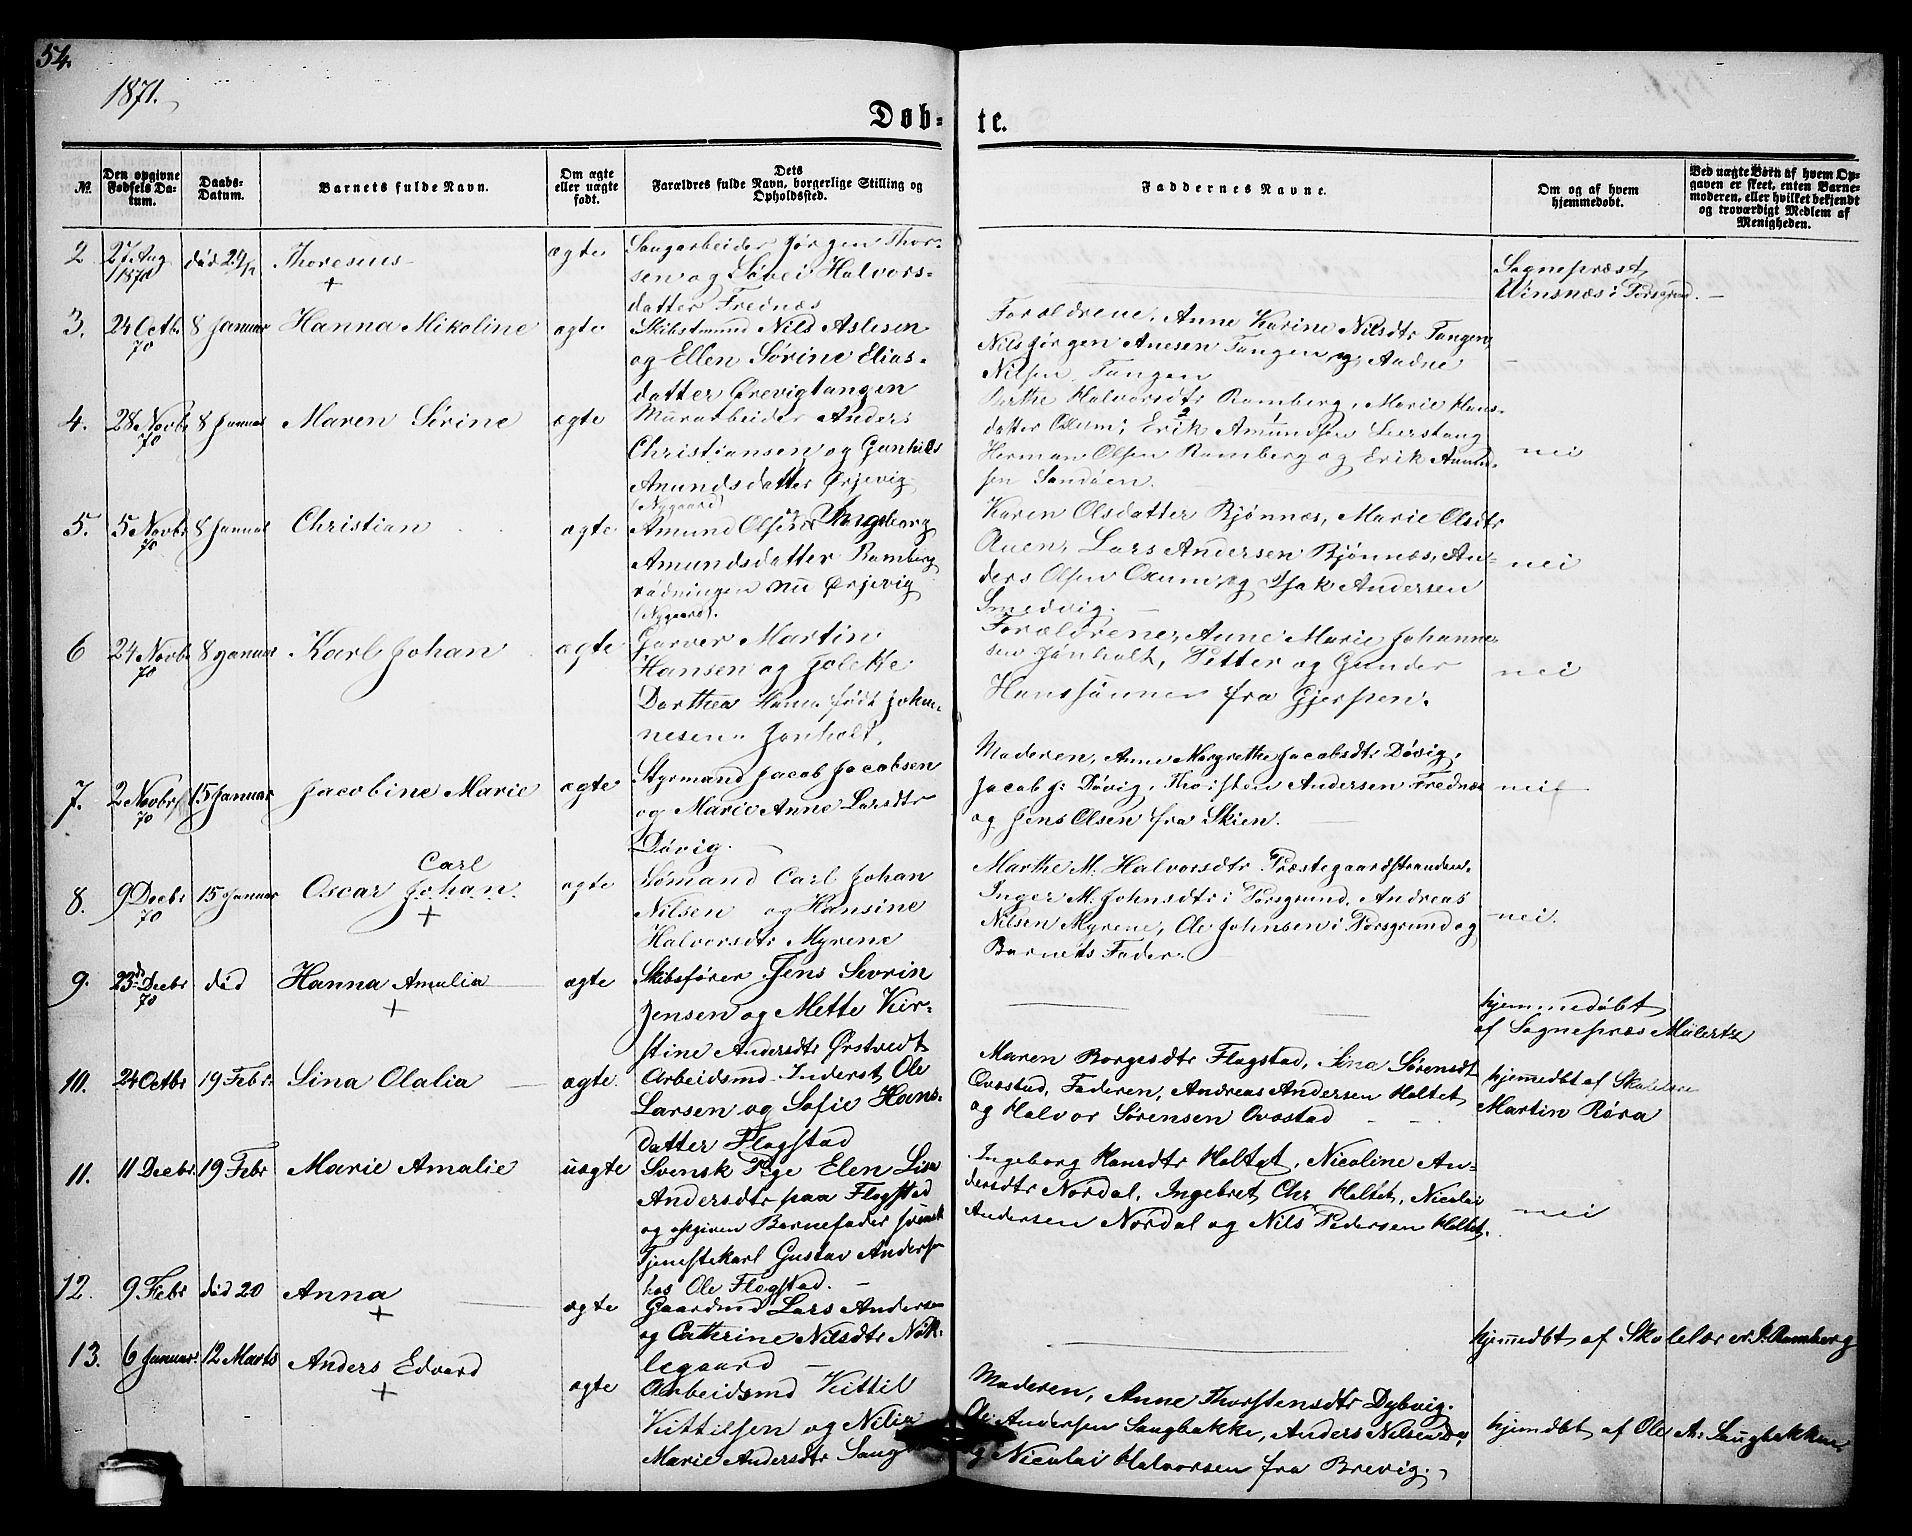 54.
1871.
Døb-
te.
№
Den opgivne Fødsels Da-tum.
Daabs-Datum.
Barnets fulde Navn.
Om ægte eller uægte født.
Dets Forældres fulde Navn, borgerlige Stilling og Opholdssted.
Faddernes Navne.
Om og af hvem hjemmedøbt.
Ved uægte Børn af hvem Op-gaven er skeet, enten Barne-moderen, eller hvilket bekjendt og troværdigt Medlem af Menigheden.
2 27 Aug 1870 død 29/1 Thoresius + ægte
Saugarbeider Jørgen Thor-
sen og Halvors-
datter Frednæs
Sognepræst
Winsnæs i Porsgrund.
3. 24 Octbr 70 8 Januar Hanna Mikoline ægte
Skibstmmd Nils Aslesen
og Ellen Sørine Elias-
datter Ørevigtangen
Forældrene, Anne Karine Nilsdtr Tangen,
Nils Jørgen Anesen Tangen og Aadne
Nilsen Tangen
4. 28 Novbr 70 8 Januar Maren Sirine ægte
Murarbeider Anders
Christiansen og Gunhild
Amundsdatter Ørjevig
(Nygaard)
Berthe Halvorsdtr Ramberg, Marie Hans-
datter Oxum, Erik Amundsen
Herman Olsen Ramberg og Erik Amund-
sen Sandøen.
nei
5. 5 Novbr 70 8 Januar Christian ægte
Amund Olsen og Ingeborg
Amundsdatter Ramberg
rødningen nu Ørjevig
(Nygaard).
Karen Olsdatter Bjønnes, Marie Olsdtr
Auen, Lars Andersen Bjønnes, An-
ders Olsen Oxum, og Isak Andersen
Smedvig.
nei
6 24 Novbr 70 8 Januar Karl Johan ægte
Garver Martin
Hansen og Jolette
Dorthea Hansen født Johan-
nesen Jonholt.
Forældrene, Anne Marie Johanne-
sen Jønholt, Petter og Gunder
Hanssønner fra Gjerpen.
nei
7. 2 Novbr 70 15 Januar Jacobine Marie ægte
Styrmand Jacob Jacobsen
og Marie Anne Larsdtr
Døvig.
Moderen, Anne Margrethe Jacobsdtr Døvig,
Jacob J: Døvig, Thorsten Andersen Frednæs
og Jens Olsen fra Skien.
nei
8. 9 Decbr 70 15 Januar Oscar Carl Johan + ægte
Sømand Carl Johan
Nilsen og Hansine
Halvorsdtr Myrene
Marthe M. Halvorsdtr Præstegaardstranden.
Inger M. Johnsdtr i Porsgrund. Andreas
Nilsen Myrene, Ole Johnsen i Porsgrund og
Barnets Fader.
nei.
9. 23de Decbr 70 død Hanna Amalia + ægte
Skibsfører Jens Sevrin
Jensen og Mette Kir-
stine Andersdtr Ørstvedt
hjemmedøbt
af Sognepræs Mülertz
10. 24 Octbr 19 Febr: Lina Olalia ægte.
Arbeidsmd Inderst Ole
Larsen og Sofie Hans-
datter Flogstad
Maren Borgesdtr Flogstad, Sina Sørensdt
Ovostad, Faderen, Andreas Andersen Holtet
og Halvor Sørensen Ovostad
hjemmedbt af Skolelære
Martin Røra
11. 11 Decbr 19 Febr Marie Amalie uægte
Svensk Pige Elen Lise
Andersdtr paa Flogstad
og opgiven Barnefader svensk
Tjenstekarl Gustav Andersen
hos Ole Flogstad.
Ingeborg Hansdtr Holtet, Nicoline An-
dersdtr Nordal, Ingebret Chr Holtet, Nicolai
Andersen Nordal og Nils Pedersen Holtet.
nei
12. 9 Febr død 20 Anna + ægte
Gaardmd Lars Andersen
og Catherine Nilsdtr Nøk-
legaard
hjemmedbt af Skolelærer Ramberg
13. 6 Januar: 12 Marts Anders Edvard + ægte
Arbeidsmd Kittil
Kittilsen og Nilia
Marie Andersdtr Saugb
Moderen, Anne Thorstensdtr Dybvig.
Ole Andersen Saugbakke, Anders Nilsen
og Nicolai Halvorsen fra Brevig.
hjemdbt af Ole A: Saugbakken